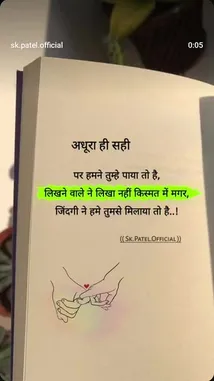 sk.patel.official
0:05
अधूरा ही सही
पर हमने तुम्हे पाया तो है,
लिखने वाले ने लिखा नहीं किस्मत में मगर,
जिंदगी ने हमे तुमसे मिलाया तो है..!
(( Sk.Patel.Official ))